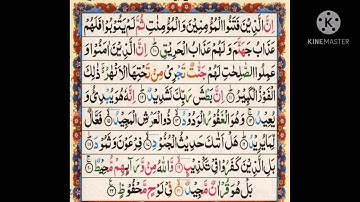 اِنَّ الَّذِيْنَ فَتَنُوا الْمُؤْمِنِيْنَ وَالْمُؤْمِنٰتِ ثُمَّ لَمْ يَتُوْبُوْا فَلَهُمْ
عَذَابُ جَهَنَّمَ وَلَهُمْ عَذَابُ الْحَرِيْقِ اِنَّ الَّذِيْنَ اٰمَنُوْا وَ
عَمِلُوا الصّٰلِحٰتِ لَهُمْ جَنّٰتٌ تَجْرِيْ مِنْ تَحْتِهَا الْاَنْهٰرُ ذٰلِكَ
الْفَوْزُ الْكَبِيْرُ ﴿۱۱﴾ اِنَّ بَطْشَ رَبِّكَ لَشَدِيْدٌ ﴿۱۲﴾ اِنَّهٗ هُوَ يُبْدِئُ وَ
يُعِيْدُ ﴿۱۳﴾ وَهُوَ الْغَفُوْرُ الْوَدُوْدُ ﴿۱۴﴾ ذُو الْعَرْشِ الْمَجِيْدُ ﴿۱۵﴾ فَعَّالٌ
لِّمَا يُرِيْدُ ﴿۱۶﴾ هَلْ اَتٰىكَ حَدِيْثُ الْجُنُوْدِ ﴿۱۷﴾ فِرْعَوْنَ وَثَمُوْدَ ﴿۱۸﴾
بَلِ الَّذِيْنَ كَفَرُوْا فِيْ تَكْذِيْبٍ ﴿۱۹﴾ وَّاللّٰهُ مِنْ وَّرَآئِهِمْ مُّحِيْطٌ ﴿۲۰﴾
بَلْ هُوَ قُرْاٰنٌ مَّجِيْدٌ ﴿۲۱﴾ فِيْ لَوْحٍ مَّحْفُوْظٍ ﴿۲۲﴾
Made with
KINEMASTER